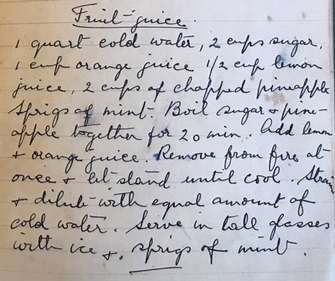 Fruit-juice.
1 quart cold water, 2 cups sugar,
1 cup orange juice 1/2 cup lemon
juice, 2 cups of chopped pineapple
sprigs of mint. Boil sugar & pine-
apple together for 20 min. Add lemon
& orange juice. Remove from fire at
once & let stand until cool. Strain
& dilute with equal amount of
cold water. Serve in tall glasses
with ice & sprigs of mint.